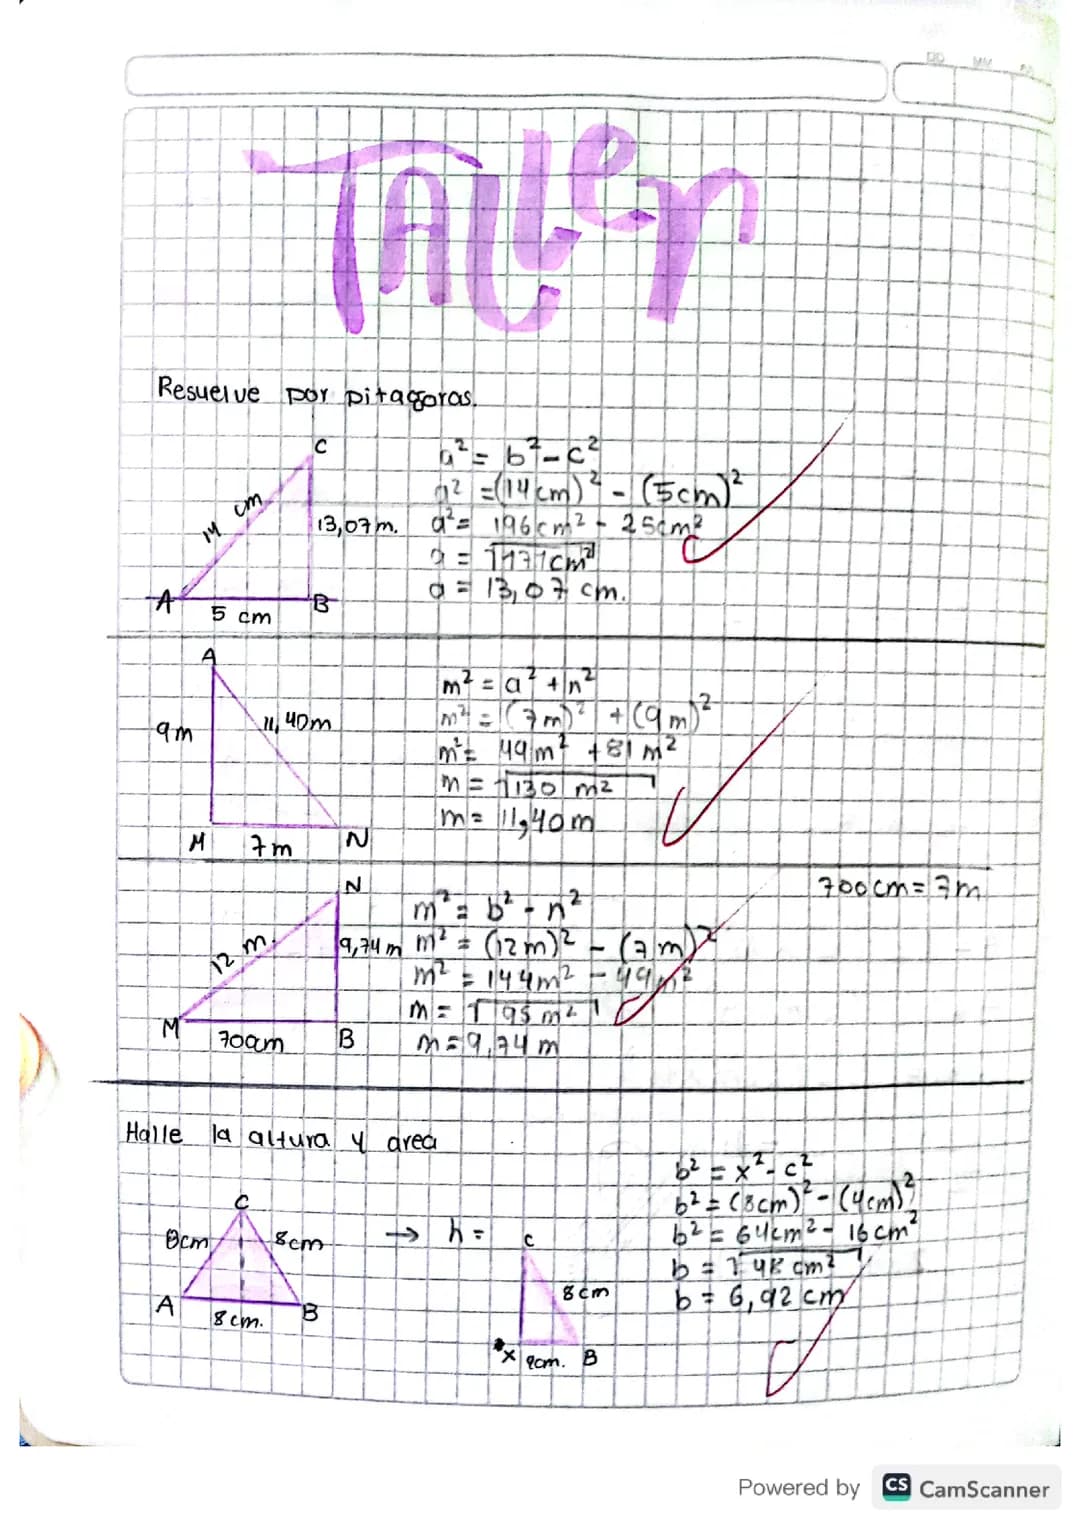 DD MM AA
TALLER
Resuelve por pitagoras.
C
14 cm
13,07m.
A
5 cm
B
a² = b² - c²
a² = (14cm)² - (5cm)²
a² = 196cm² - 25cm²
a = √171cm²
a = 13,07 cm.
A
9m
11,40m
M
7m
N
m² = a² + n²
m² = (7m)² + (9m)²
m² = 49m² + 81 m²
m = √130 m²
m = 11,40m
700cm = 7m
N
12 m.
9,74m
M
700cm
B
m² = b² - n²
m² = (12m)² - (7m)²
m² = 144m² - 49m²
m = √95 m²
m = 9,74m
Halle la altura y area
C
8cm
8cm
A
8cm.
B
→ h =
C
8cm
x
B
b² = x² - c²
b² = (8cm)² - (4cm)²
b² = 64cm² - 16cm²
b = √48 cm²
b = 6,92 cm
Powered by CS CamScanner